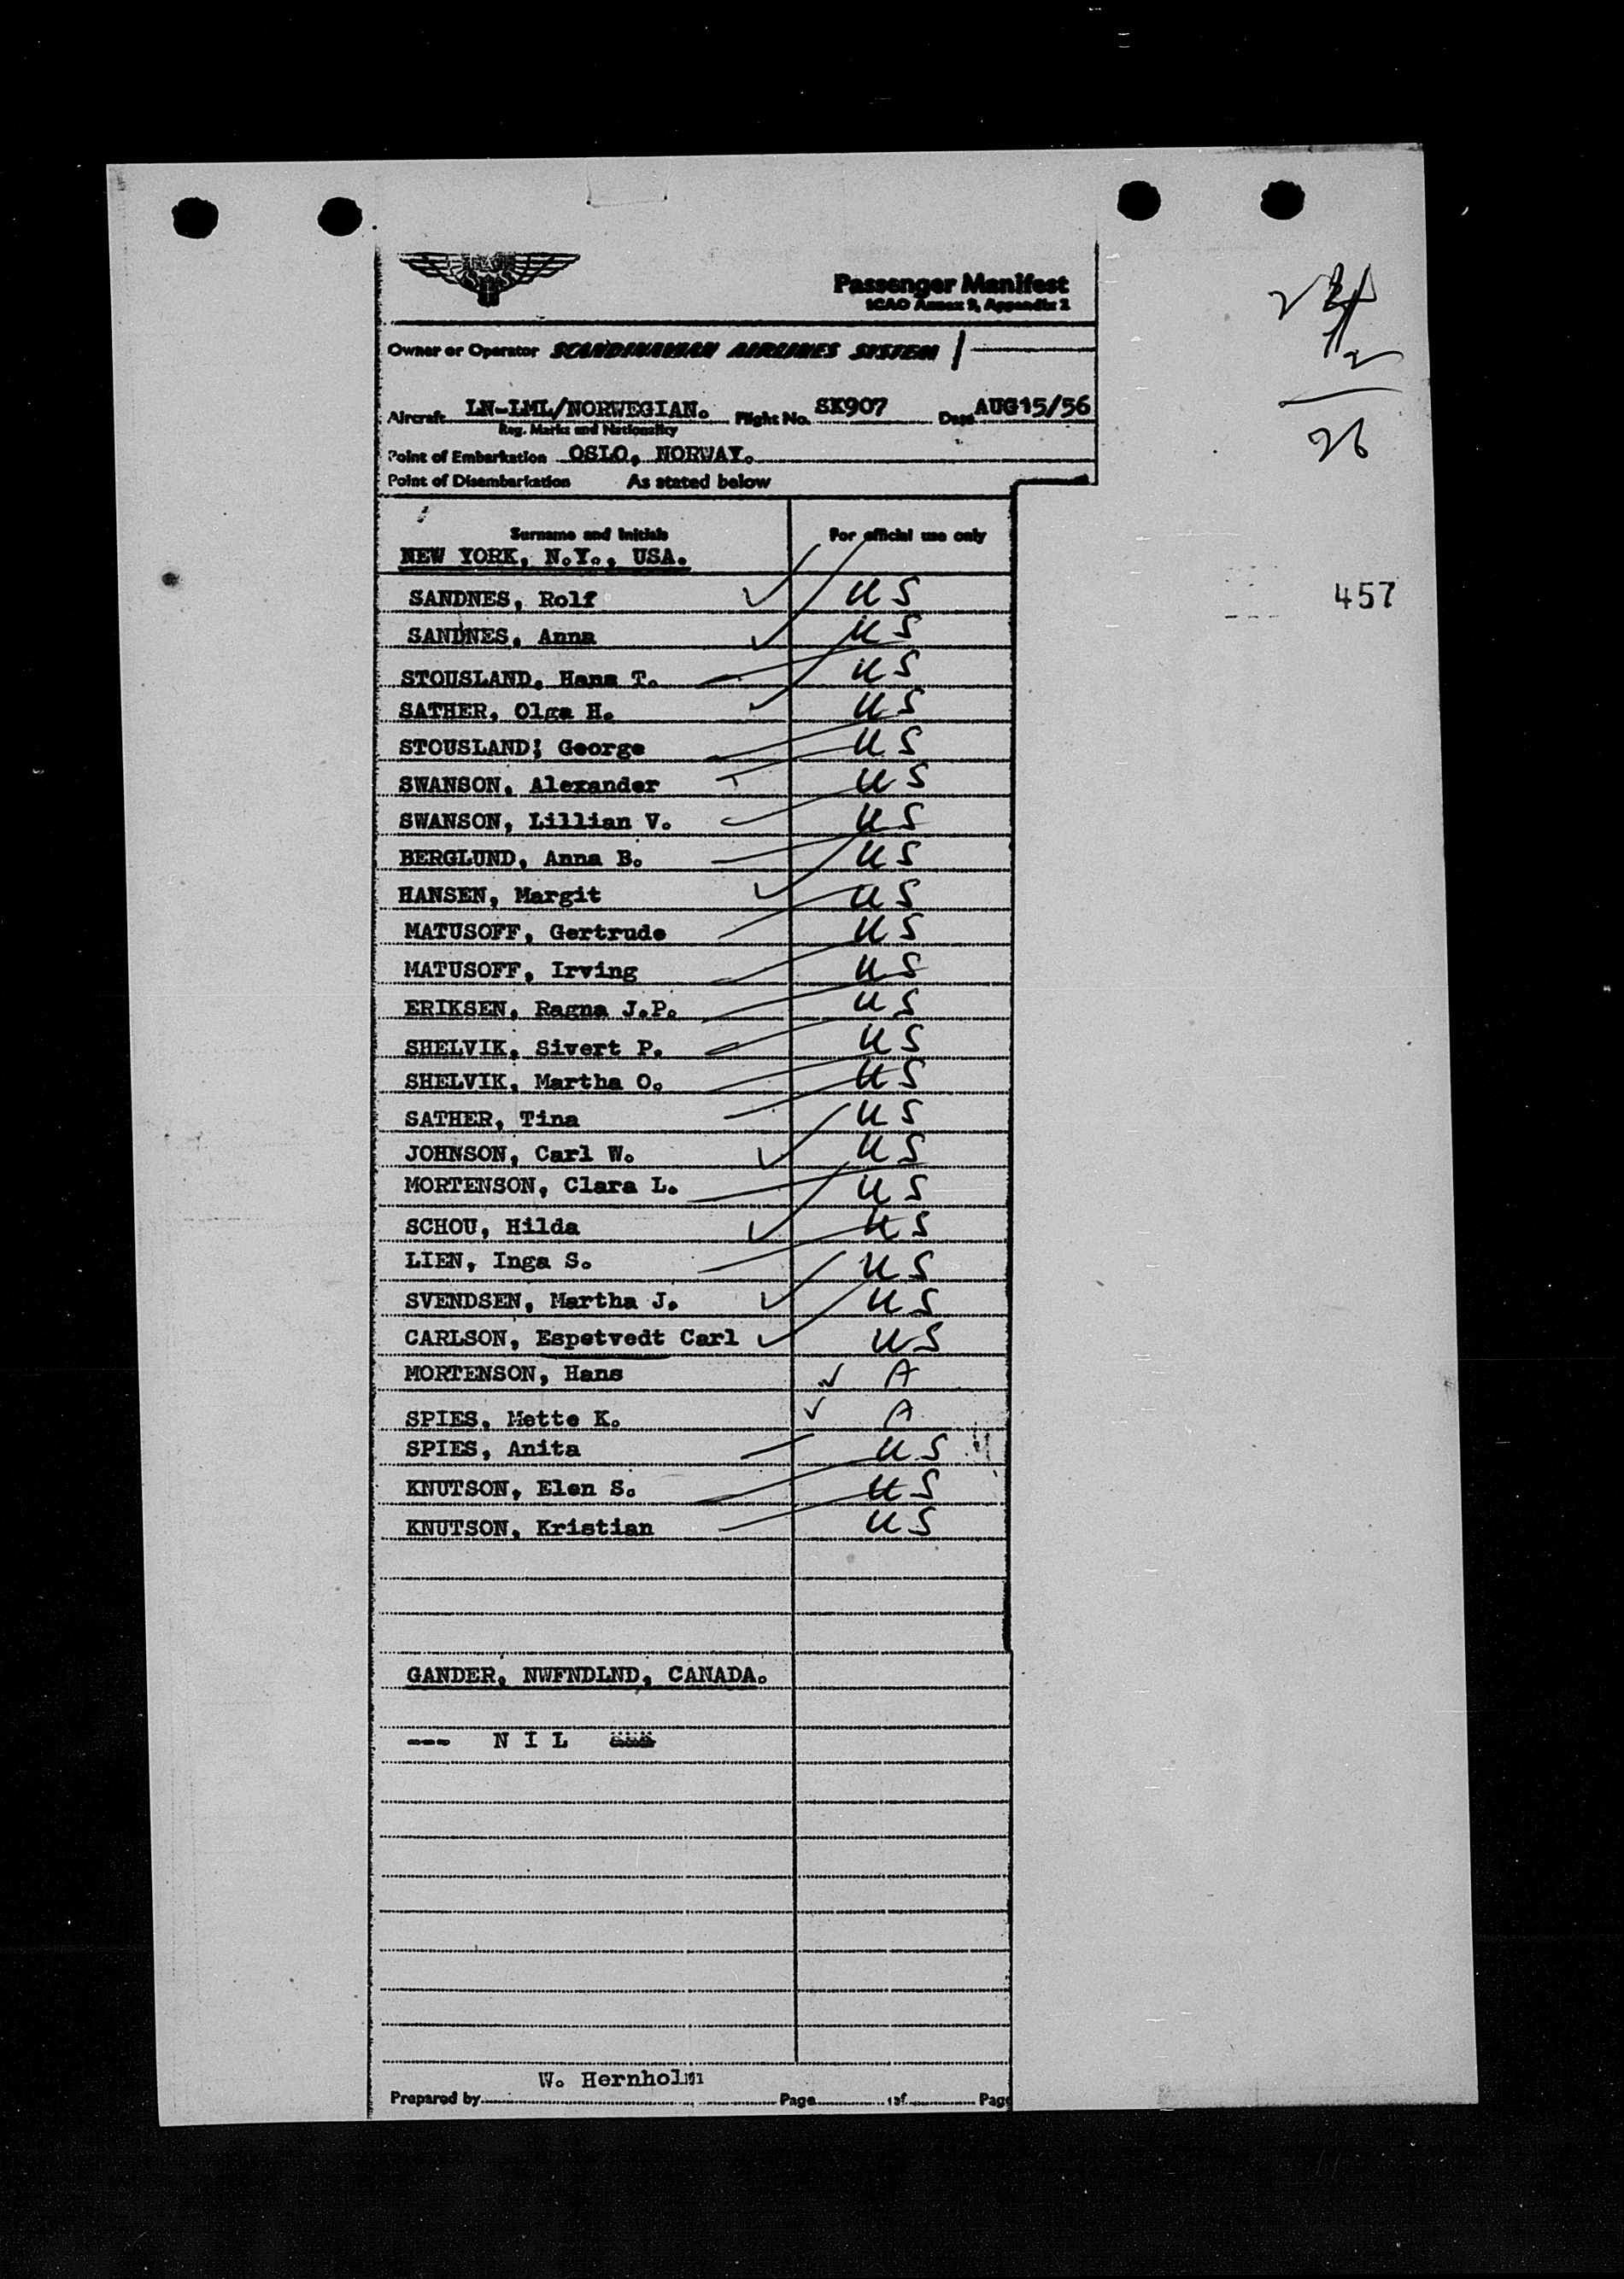 SAS
Passenger Manifest
ICAO Annex 9, Appendix 2
Owner or Operator SCANDINAVIAN AIRLINES SYSTEM
Aircraft LN-LML/NORWEGIAN. Flight No. SK907 Date AUG15/56
Reg. Marks and Nationality
Point of Embarkation OSLO, NORWAY.
Point of Disembarkation As stated below
Surname and Initials For official use only
NEW YORK, N.Y., USA.
SANDNES, Rolf US
SANDNES, Anna US
STOUSLAND, Hans T. US
SATHER, Olga H. US
STOUSLAND; George US
SWANSON, Alexander US
SWANSON, Lillian V. US
BERGLUND, Anna B. US
HANSEN, Margit US
MATUSOFF, Gertrude US
MATUSOFF, Irving US
ERIKSEN, Ragna J.P. US
SHELVIK, Sivert P. US
SHELVIK, Martha O. US
SATHER, Tina US
JOHNSON, Carl W. US
MORTENSON, Clara L. US
SCHOU, Hilda US
LIEN, Inga S. US
SVENDSEN, Martha J. US
CARLSON, Espetvedt Carl US
MORTENSON, Hans A
SPIES, Mette K. A
SPIES, Anita US
KNUTSON, Elen S. US
KNUTSON, Kristian US
GANDER, NWFNDLND, CANADA.
--- N I L
W. Hernholm
Prepared by Page of Page
2
26
457